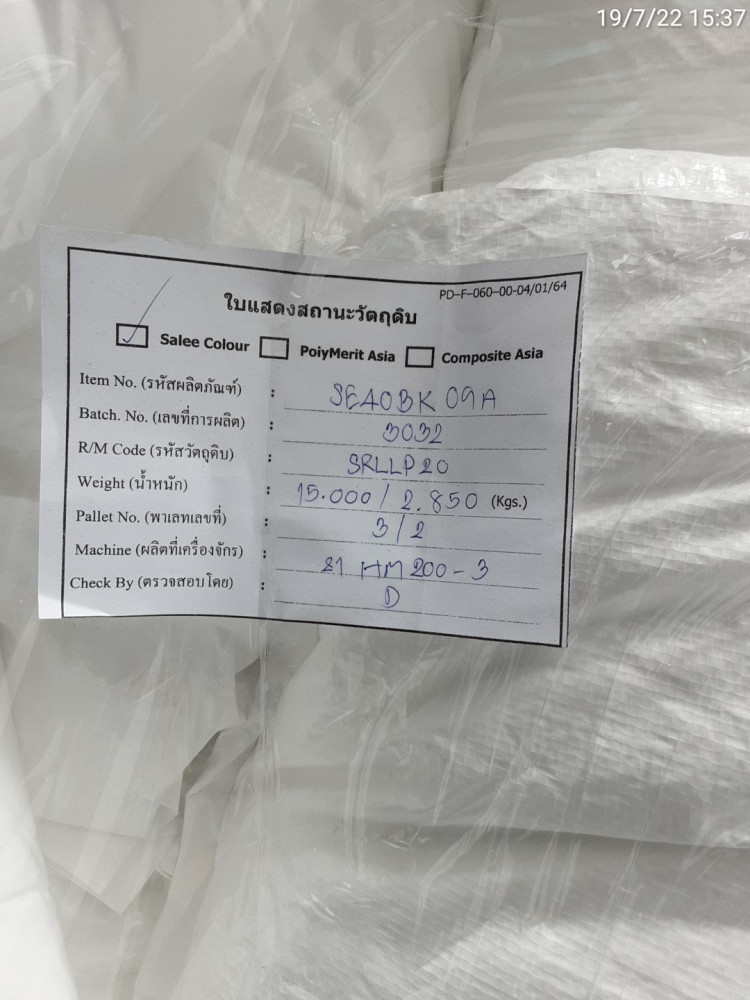 19/7/22 15:37
PD-F-060-00-04/01/64
ใบแสดงสถานะวัตถุดิบ
Salee Colour PolyMerit Asia Composite Asia
Item No. (รหัสผลิตภัณฑ์) : SE40BK09A
Batch. No. (เลขที่การผลิต) : 3032
R/M Code (รหัสวัตถุดิบ) : SRLLP20
Weight (น้ำหนัก) : 15.000 / 2.850 (Kgs.)
Pallet No. (พาเลทเลขที่) : 3/2
Machine (ผลิตที่เครื่องจักร) : HM200-3
Check By (ตรวจสอบโดย) : D